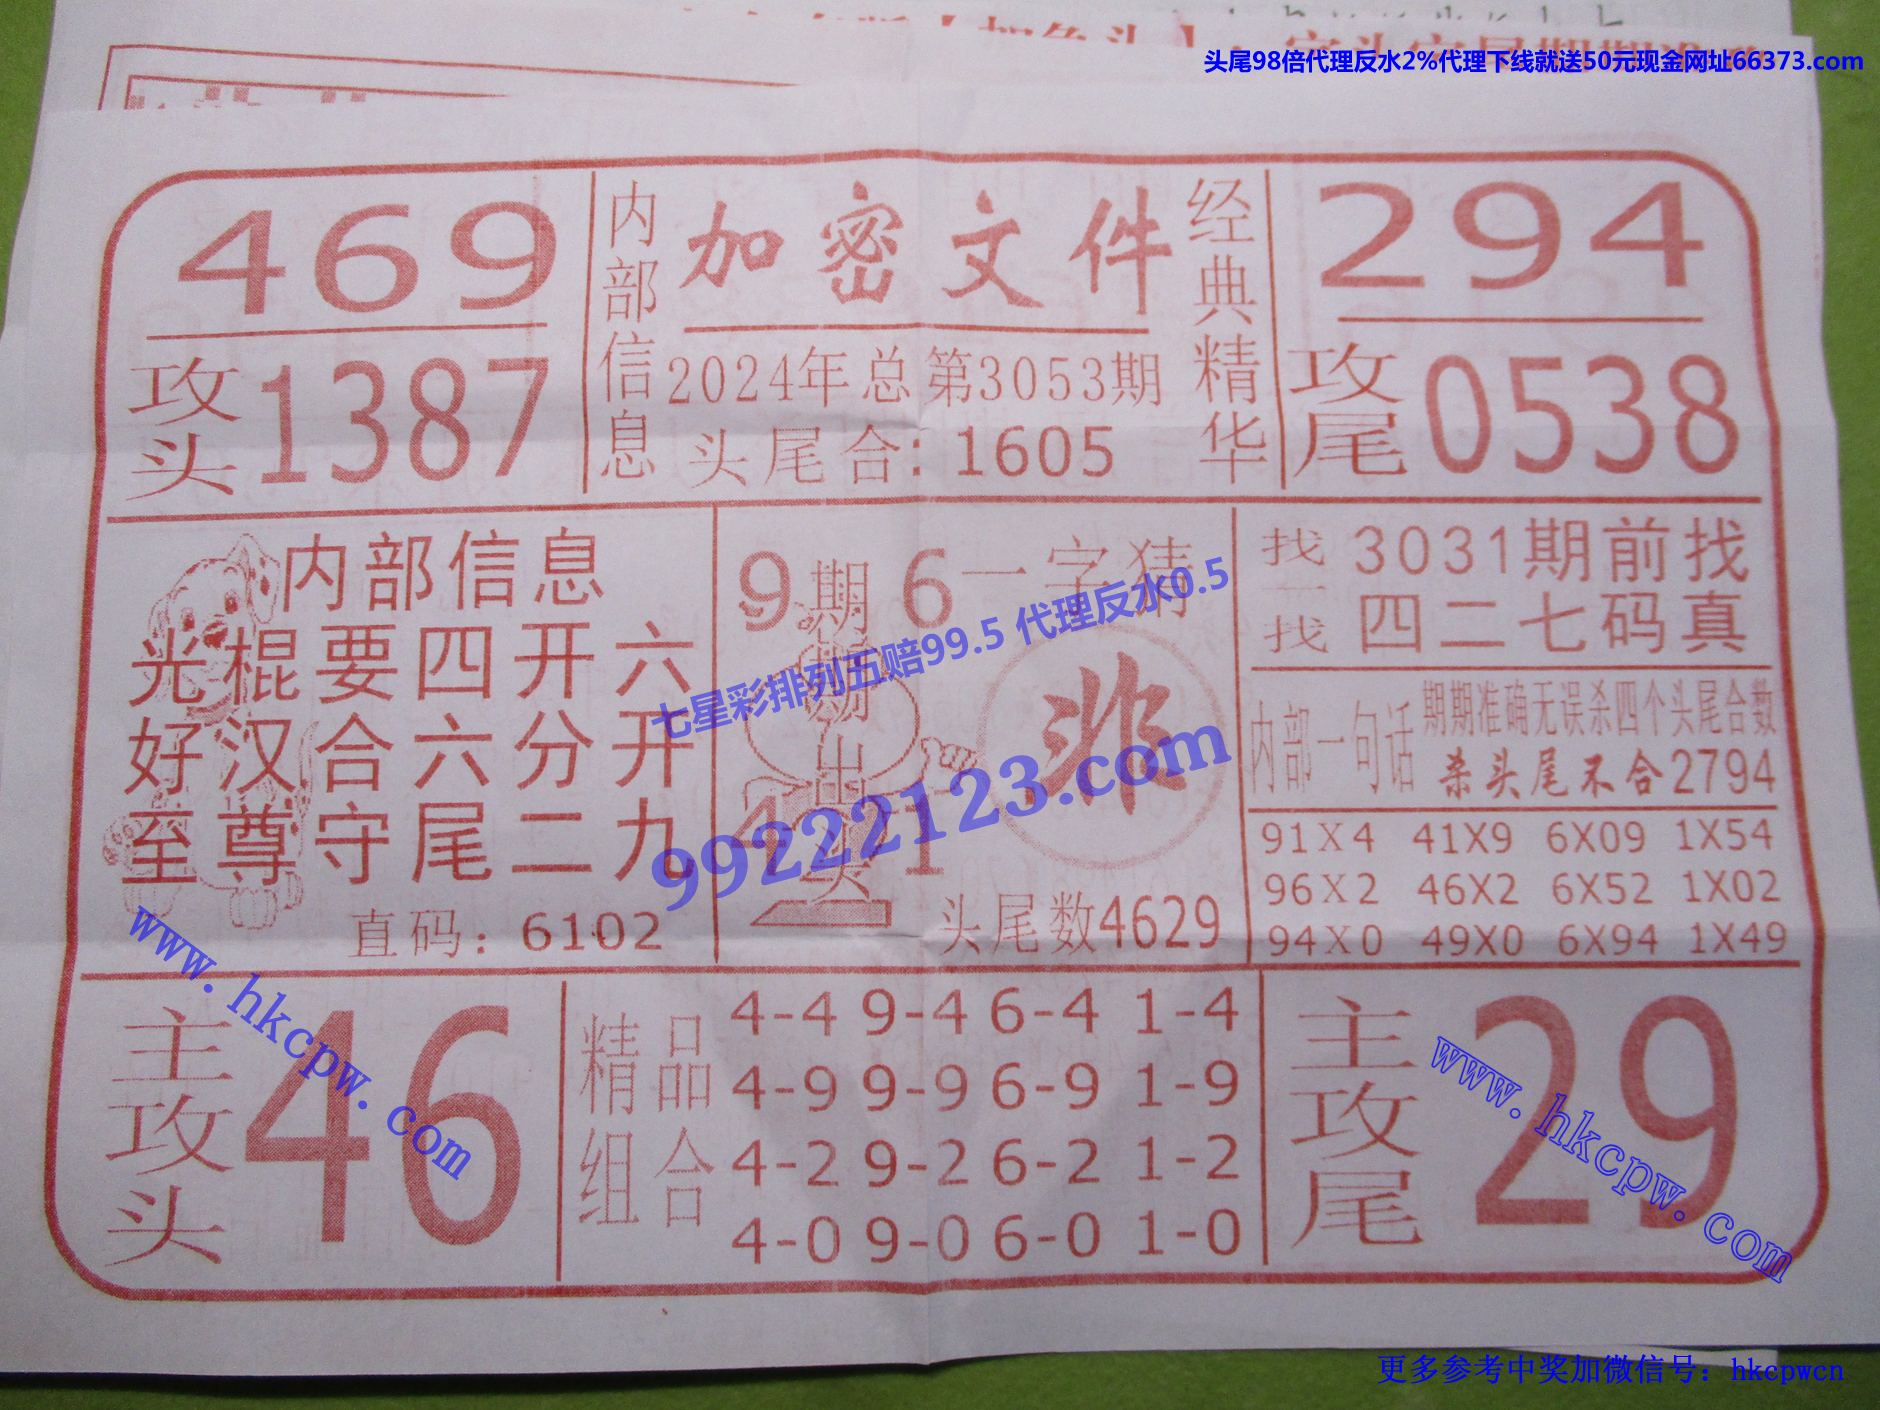 头尾98倍代理反水2%代理下线就送50元现金网址66373.com
469
攻头 1387
内部信息
加密文件
2024年总第3053期
头尾合:1605
经典精华
294
攻尾 0538
内部信息
光棍要四开六
好汉合六分开
至尊守尾二九
直码:6102
9 6
期期出头
4 1
一字猜
非
头尾数4629
找一找
3031期前找
四二七码真
内部一句话
期期准确无误杀四个头尾合数
杀头尾不合2794
91X4 41X9 6X09 1X54
96X2 46X2 6X52 1X02
94X0 49X0 6X94 1X49
七星彩排列五赔99.5 代理反水0.5
99222123.com
www.hkcpw.com
主攻头 46
精品组合
4-4 9-4 6-4 1-4
4-9 9-9 6-9 1-9
4-2 9-2 6-2 1-2
4-0 9-0 6-0 1-0
主攻尾 29
www.hkcpw.com
更多参考中奖加微信号:hkcpwcn